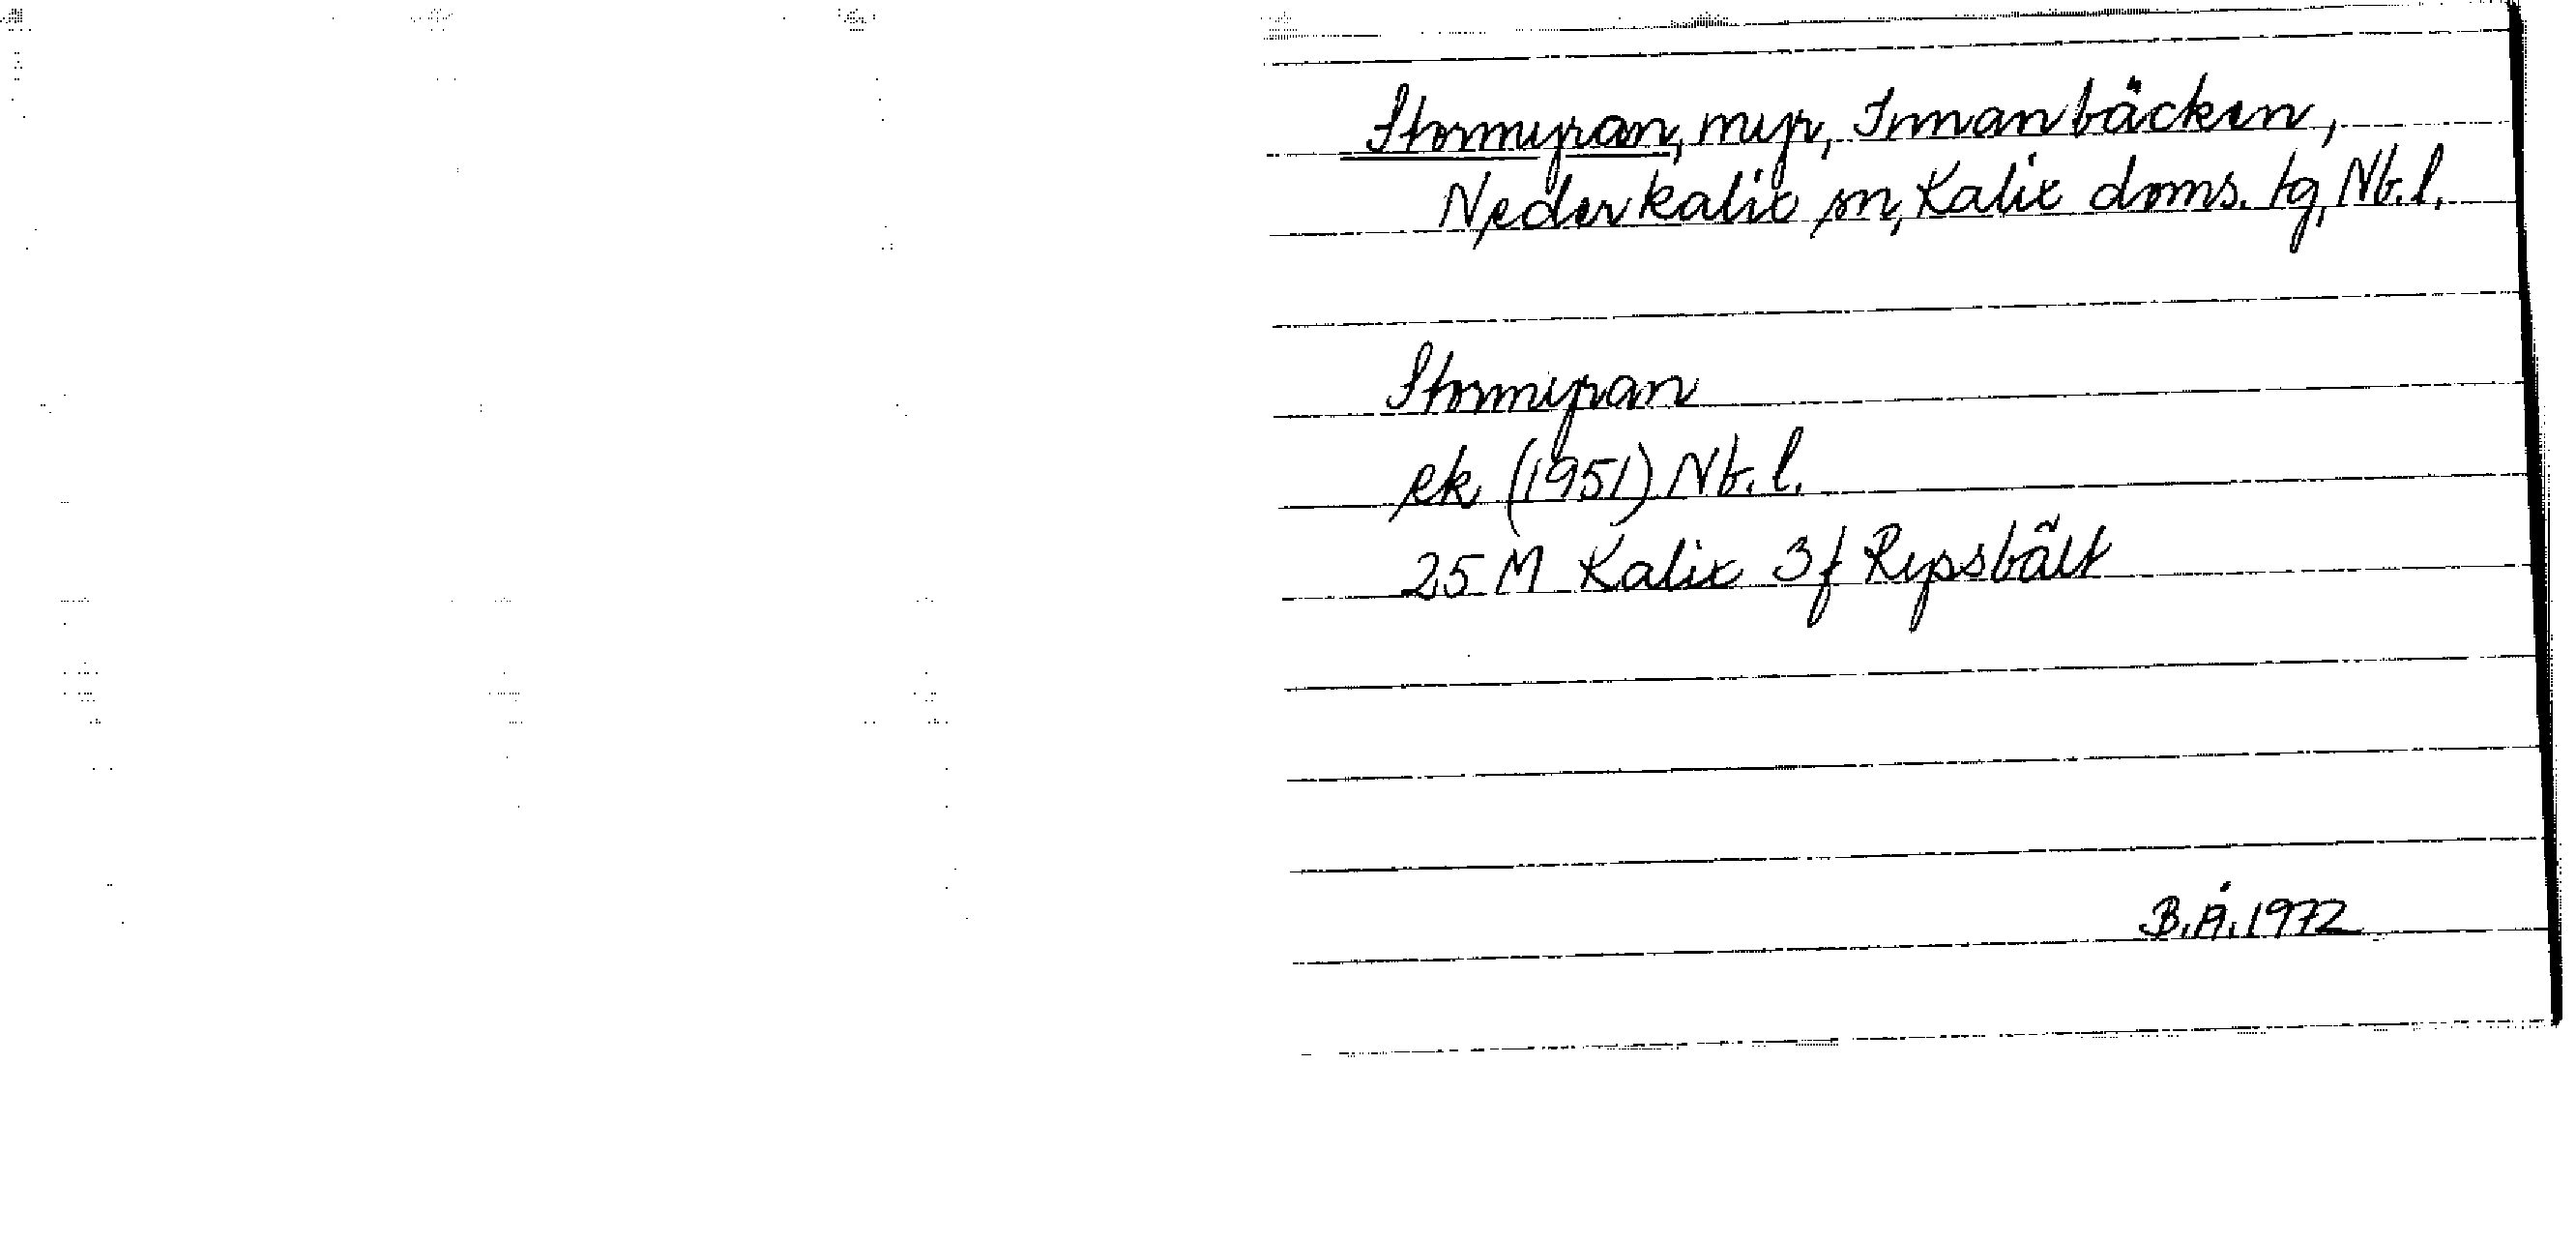 Stormyran, myr, Innanbäcken,
Nederkalix sn, Kalix doms. tg, Nb.l.
Stormyran
ek (1951) Nb.l.
25 M Kalix 3f Rypsbält
B.Å.1972